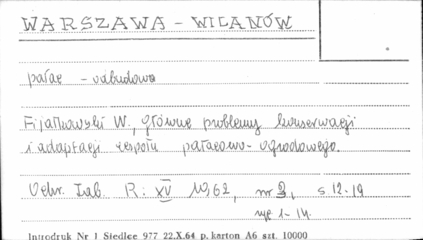 WARSZAWA - WILANÓW
pałac - odbudowa
Fijałkowski W., główne problemy konserwacji
i adaptacji zespołu pałacowo-ogrodowego.
Ochr. Zab. R: XV 1962, nr 3, s 12-19
ryc 1-14.
Introdruk Nr 1 Siedlce 977 22.X.64 p. karton A6 szt. 10000